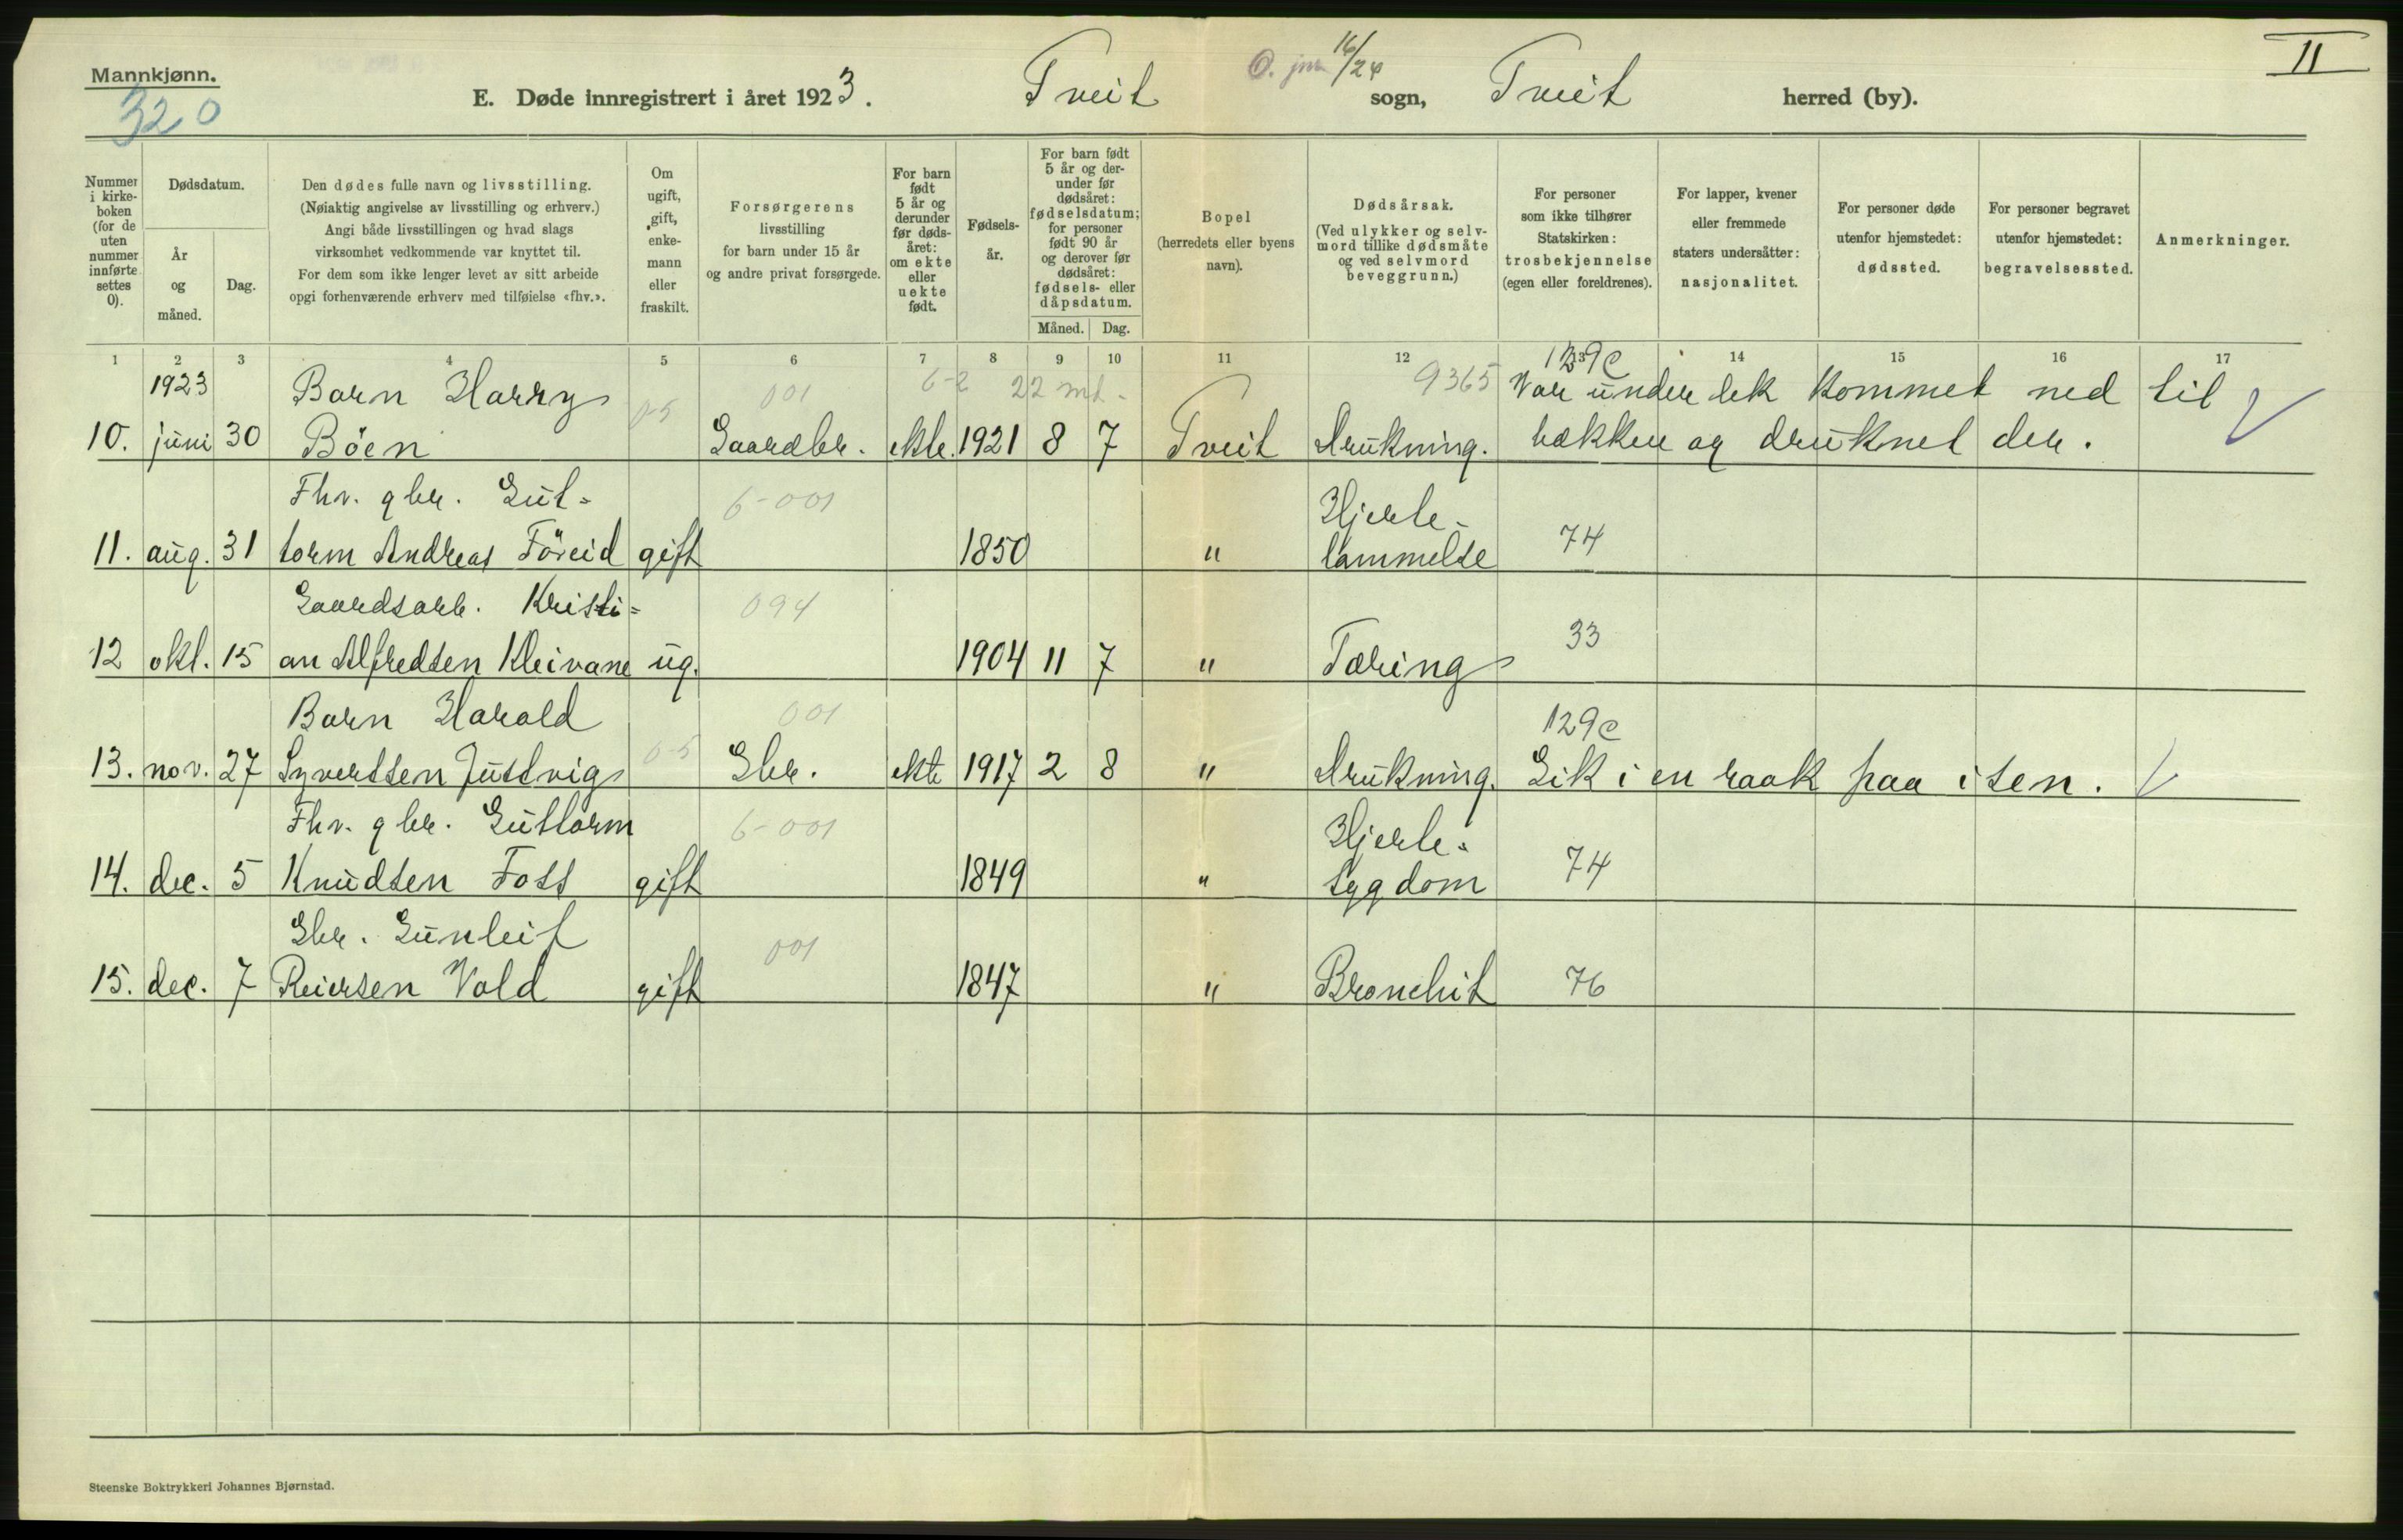 Mannkjønn.
320
E. Døde innregistrert i året 1923.
Tveit sogn, Tveit herred (by).
O. jnr. 16/24
II
Nummer i kirkeboken (for de uten nummer innførte settes 0).
Dødsdatum.
År og måned.
Dag.
Den dødes fulle navn og livsstilling.
(Nøiaktig angivelse av livsstilling og erhverv.)
Angi både livsstillingen og hvad slags
virksomhet vedkommende var knyttet til.
For dem som ikke lenger levet av sitt arbeide
opgi forhenværende erhverv med tilføielse «fhv.».
Om ugift, gift, enkemann eller fraskilt.
Forsørgerens
livsstilling
for barn under 15 år
og andre privat forsørgede.
For barn født 5 år og derunder før dødsåret: om ekte eller uekte født.
Fødselsår.
For barn født 5 år og derunder før dødsåret: fødselsdatum; for personer født 90 år og derover før dødsåret: fødsels- eller dåpsdatum.
Måned. Dag.
Bopel
(herredets eller byens
navn).
Dødsårsak.
(Ved ulykker og selvmord tillike dødsmåte og ved selvmord beveggrunn.)
For personer
som ikke tilhører
Statskirken:
trosbekjennelse
(egen eller foreldrenes).
For lapper, kvener
eller fremmede
staters undersåtter:
nasjonalitet.
For personer døde
utenfor hjemstedet:
dødssted.
For personer begravet
utenfor hjemstedet:
begravelsessted.
Anmerkninger.
1 2 3 4 5 6 7 8 9 10 11 12 13 14 15 16 17
1923 Barn Harry 0-5 001 6-2 22 mt. 9365 129c Var under lek kommet ned til
10. juni 30 Böen Gaardbr. ekte. 1921 8 7 Tveit Drukning. bækken og druknet der.
Fhv. gbr. Gut- 6-001 Hjerte-
11. aug. 31 torm Andreas Föreid gift 1850 " lammelse 74
Gaardsarb. Kristi- 094 33
12 okt. 15 an Alfredsen Kleivane ug. 1904 11 7 " Tæring
Barn Harald 001 129c
13. nov. 27 Syvertsen Justvig 0-5 Gbr. ekte 1917 2 8 " Drukning. Gik i en raak paa isen.
Fhv. gbr. Guttorm 6-001 Hjerte-
14. dec. 5 Knudsen Foss gift 1849 " sygdom 74
Gbr. Gunleif 001
15. dec. 7 Reiersen Vold gift 1847 " Bronchit 76
Steenske Boktrykkeri Johannes Bjørnstad.